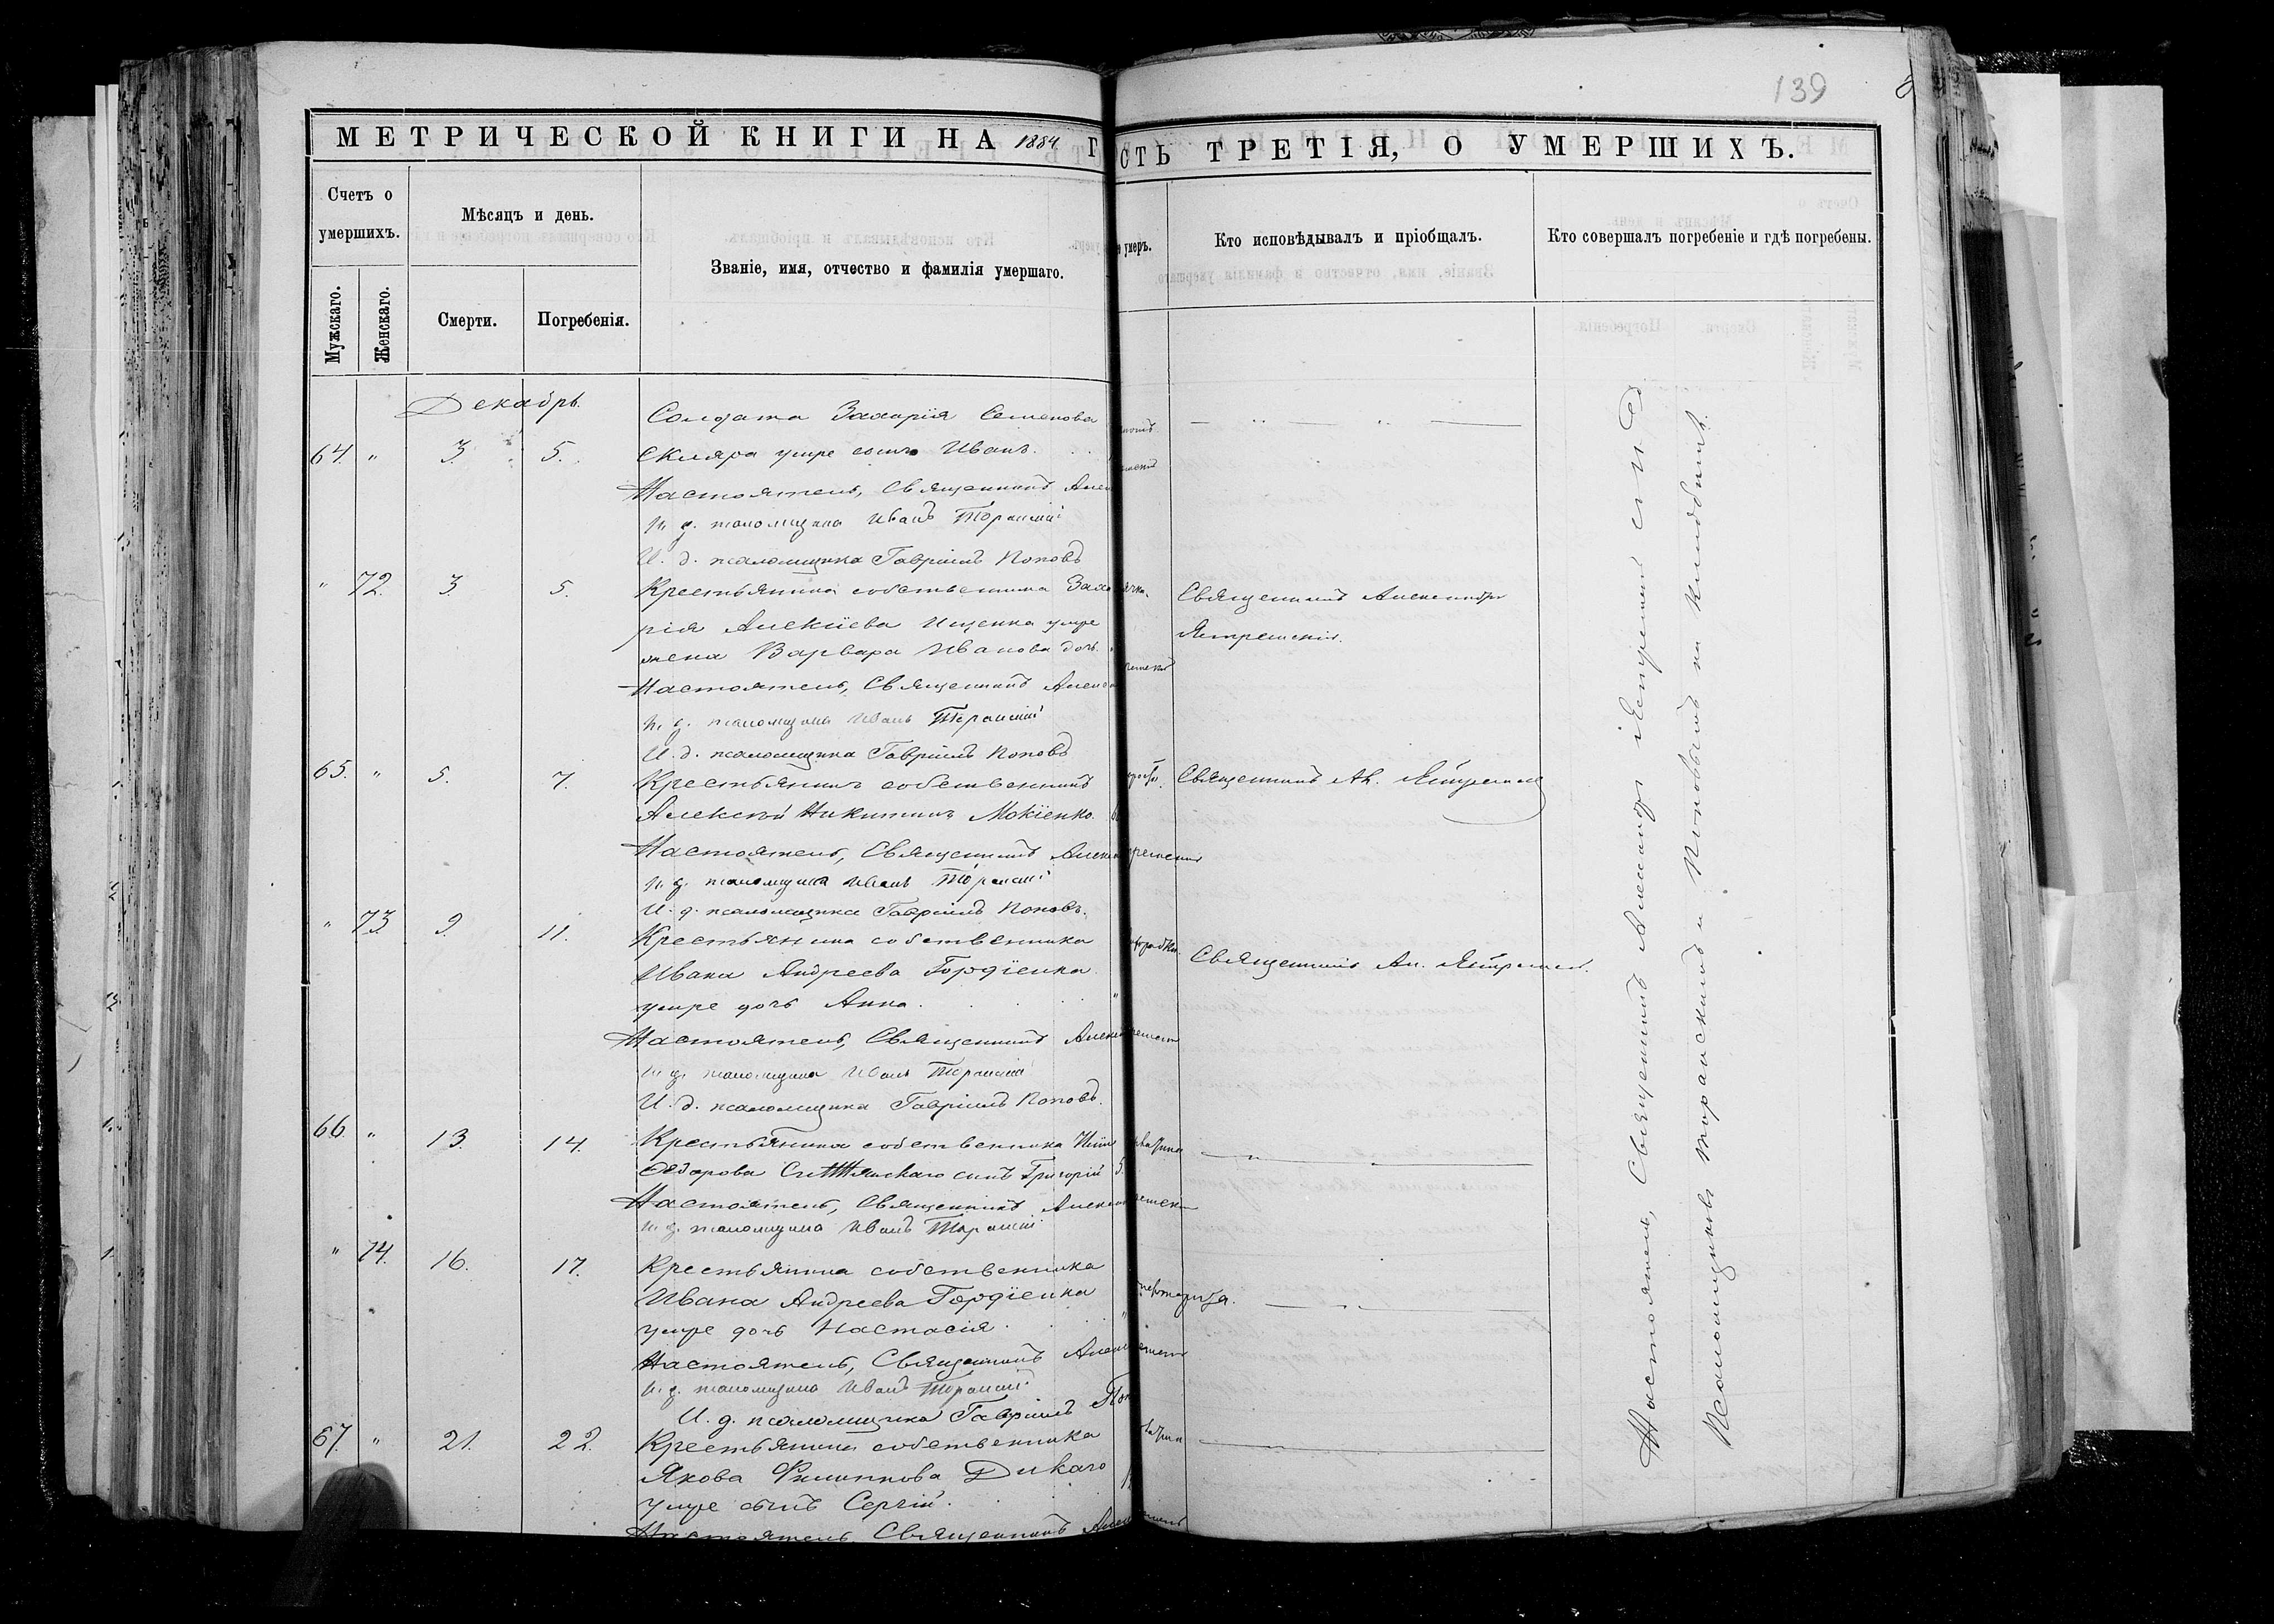 139
МЕТРИЧЕСКОЙ КНИГИ НА 1884 Г
СТЬ ТРЕТІЯ, О УМЕРШИХЪ.
Счетъ о умершихъ.
Мужскаго.
Женскаго.
Мѣсяцъ и день.
Смерти.
Погребенія.
Званіе, имя, отчество и фамилія умершаго.
умеръ.
Кто исповѣдывалъ и пріобщалъ.
Кто совершалъ погребеніе и гдѣ погребены.
Декабрь.
64. " 3. 5.
Солдата Захарія Семенова
Скляра умре сынъ Иванъ.
Настоятель, Священникъ Алек
И. д. псаломщика Иванъ Торанскій
И. д. псаломщика Гавріилъ Поповъ
" 72. 3. 5.
Крестьянина собственника Заха
рія Алекіева Ищенка умре
жена Варвара Иванова дочь.
Священникъ Александръ
Ястремскій.
Настоятель, Священникъ Алекс
И. д. псаломщика Иванъ Торанскій
И. д. псаломщика Гавріилъ Поповъ
65. " 5. 7.
Крестьянинъ собственникъ
Алексѣй Никитинъ Мокіенко.
Священникъ Ал. Ястремскій
Настоятель, Священникъ Алекс
И. д. псаломщика Иванъ Торанскій
И. д. псаломщика Гавріилъ Поповъ.
" 73 9. 11.
Крестьянина собственника
Ивана Андреева Гордіенка
умре дочь Анна.
Священникъ Ал. Ястремскій.
Настоятель, Священникъ Алекс
И. д. псаломщика Иванъ Торанскій
И. д. псаломщика Гавріилъ Поповъ.
66. " 13. 14.
Крестьянина собственника
Ѳедорова сынъ Григорій
Настоятель, Священникъ Алекс
И. д. псаломщика Иванъ Торанскій
" 74. 16. 17.
Крестьянина собственника
Ивана Андреева Гордіенка
умре дочь Настасія.
Настоятель, Священникъ Алекс
И. д. псаломщика Иванъ Торанскій
И. д. псаломщика Гавріилъ Поп
67. " 21. 22.
Крестьянина собственника
Якова Филиппова Дикаго
умре сынъ Сергій.
Настоятель, Священникъ Алек
Настоятель, Священникъ Александръ Ястремскій съ И. д.
Псаломщиковъ Торанскимъ и Поповымъ на кладбищѣ.